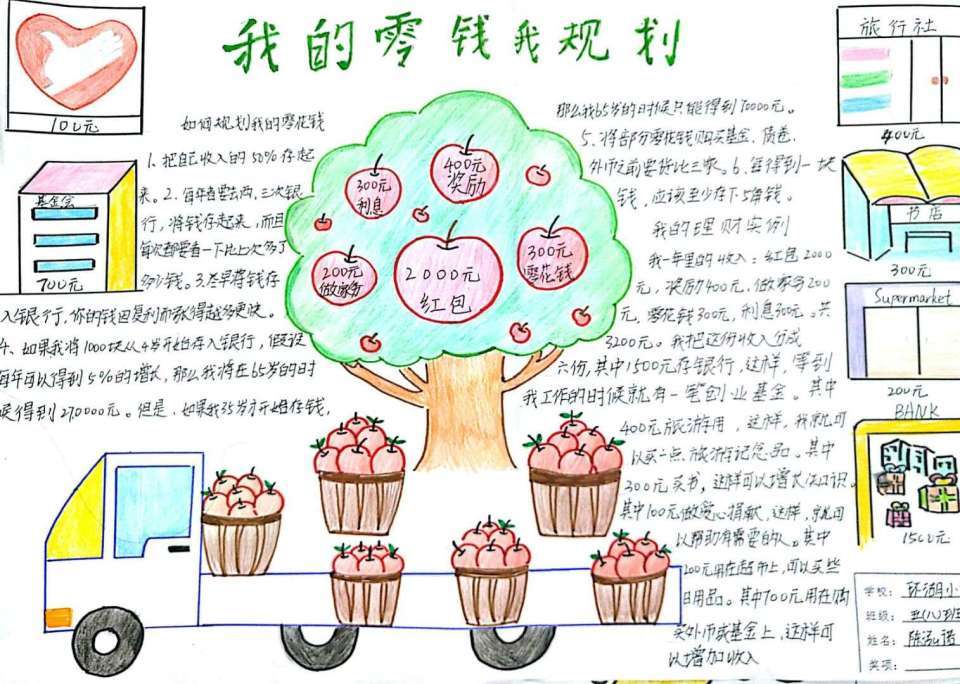 我的零钱我规划
100元
如何规划我的零花钱
1、把自己收入的50%存起
来。2、每年都要去两、三次银
行，将钱存起来，而且
每次都要看一下比上次多了
多少钱。3、尽早将钱存
入银行，你的钱因复利而获得越多更快。
4、如果我将1000块从4岁开始存入银行，假设
每年可以得到5%的增长，那么我将在65岁的时
候得到270000元。但是，如果我35岁才开始存钱，
那么我65岁的时候只能得到70000元。
5、将部分零花钱购买基金、债卷、
外币之前要货比三家。6、每得到一块
钱，应该至少存下5角钱。
我的理财实例
我一年里的收入：红包2000
元，奖励400元，做家务200
元，零花钱300元，利息300元。共
3200元。我把这份收入分成
六份，其中1500元存银行，这样，等到
我工作的时候就有一笔创业基金。其中
400元旅游用，这样，我就可
以买一点旅游记念品。其中
300元买书，这样可以增长知识。
其中100元做爱心捐献，这样，就可
以帮助有需要的人。其中
200元用在超市上，可以买些
日用品。其中700元用在购
买外币或基金上，这样可
以增加收入
基金会
700元
300元
利息
400元
奖励
200元
做家务
2000元
红包
300元
零花钱
旅行社
400元
书店
300元
Supermarket
200元
BANK
1500元
学校：环湖小
班级：五(八)班
姓名：陈泓诺
奖项：